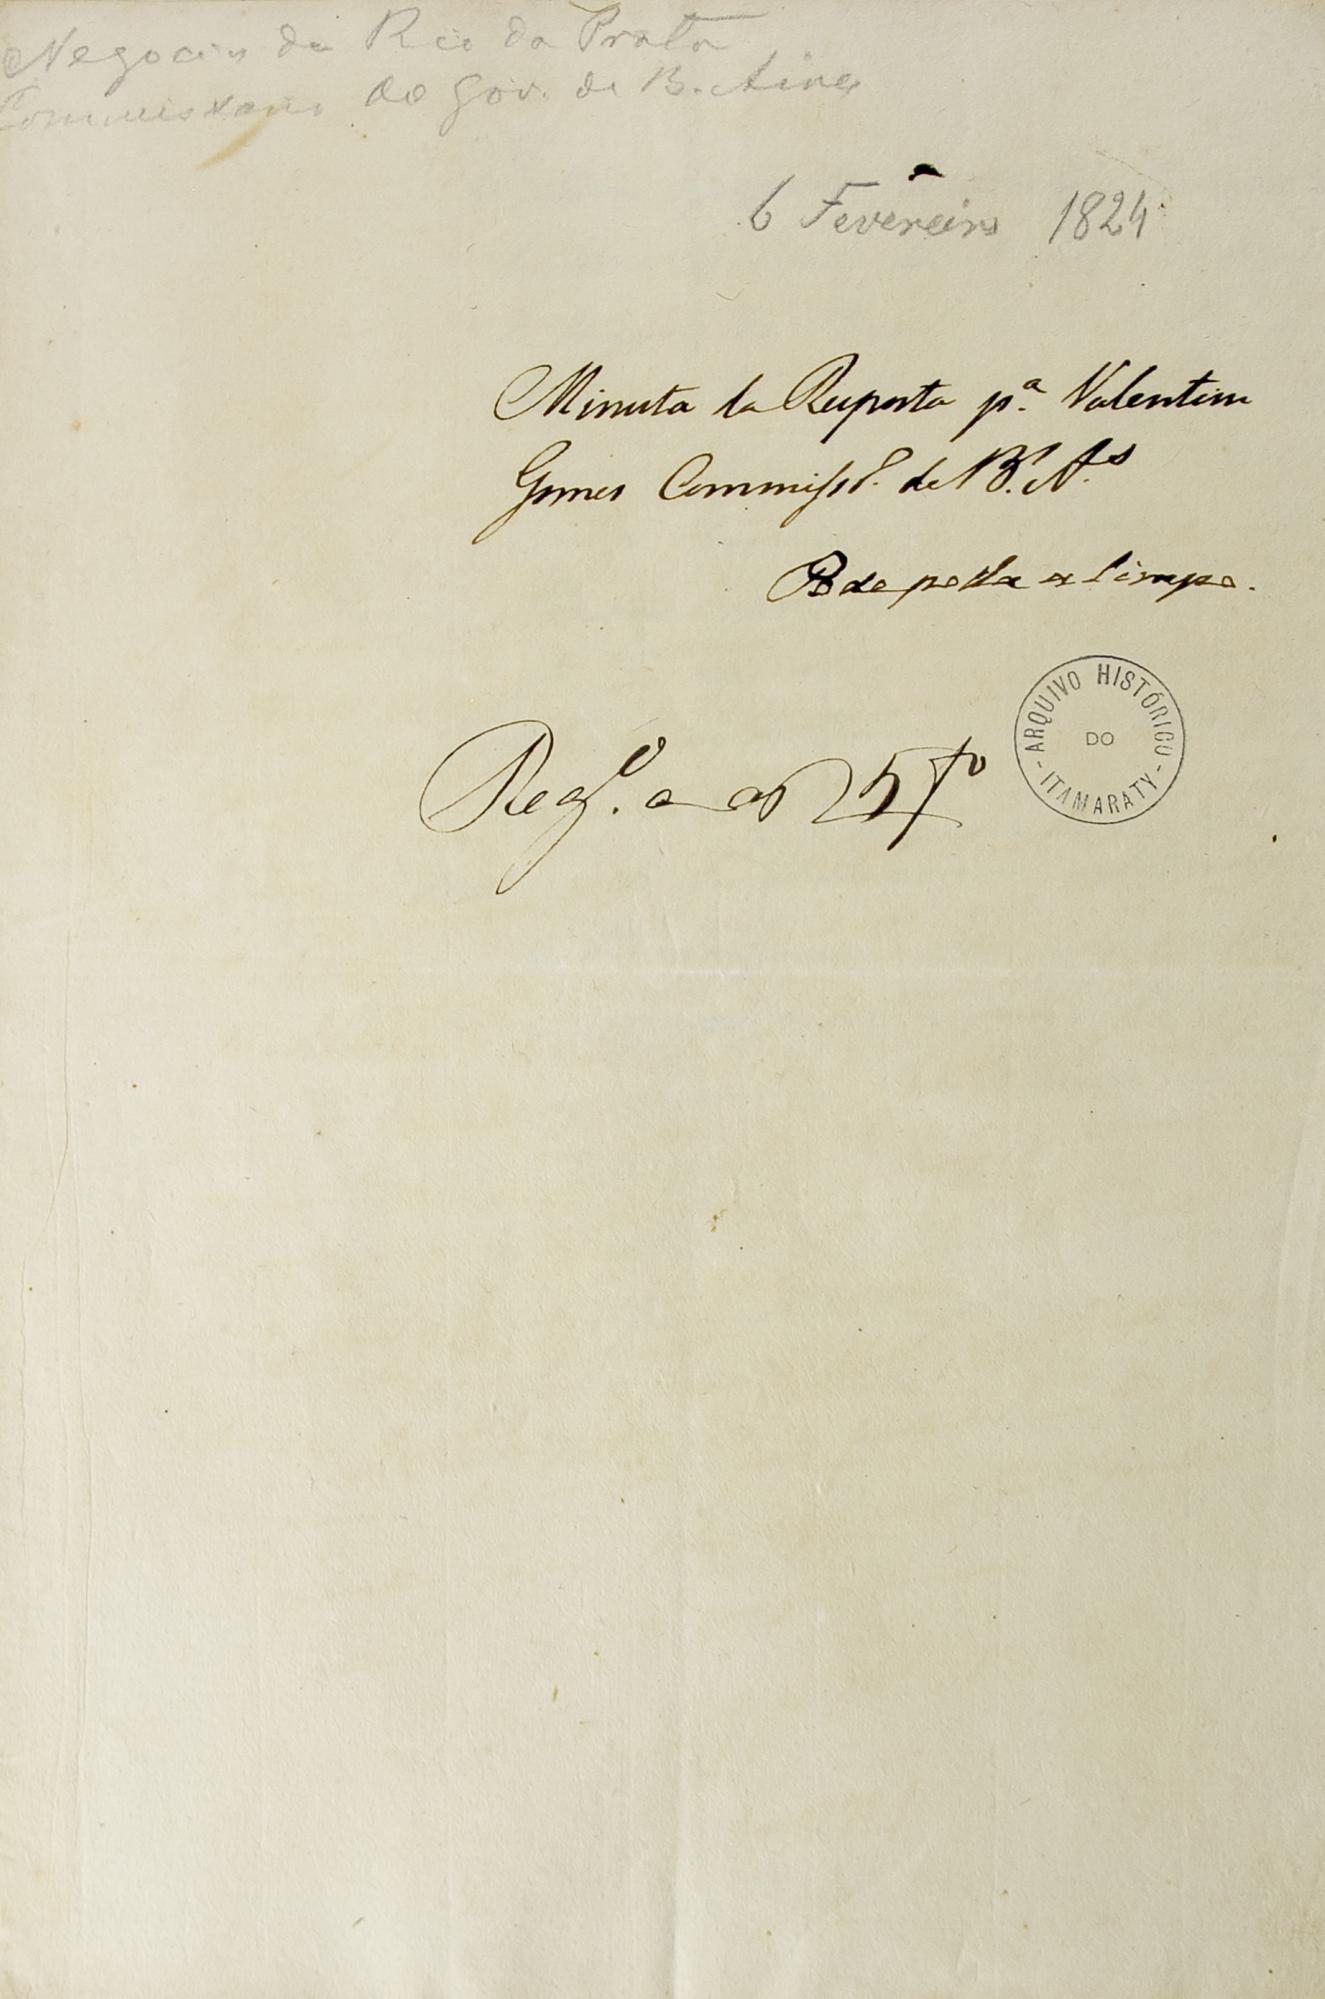 Negocios do Rio da Prata
Commissario do Gov. de B. Aires
6 Fevereiro 1824
Minuta da Resposta pª. Valentim
Gomes Commissº. de B.ˢ A.ˢ
Pode pol-la a limpo.
Regº. a
ARQUIVO HISTÓRICO
DO
ITAMARATY